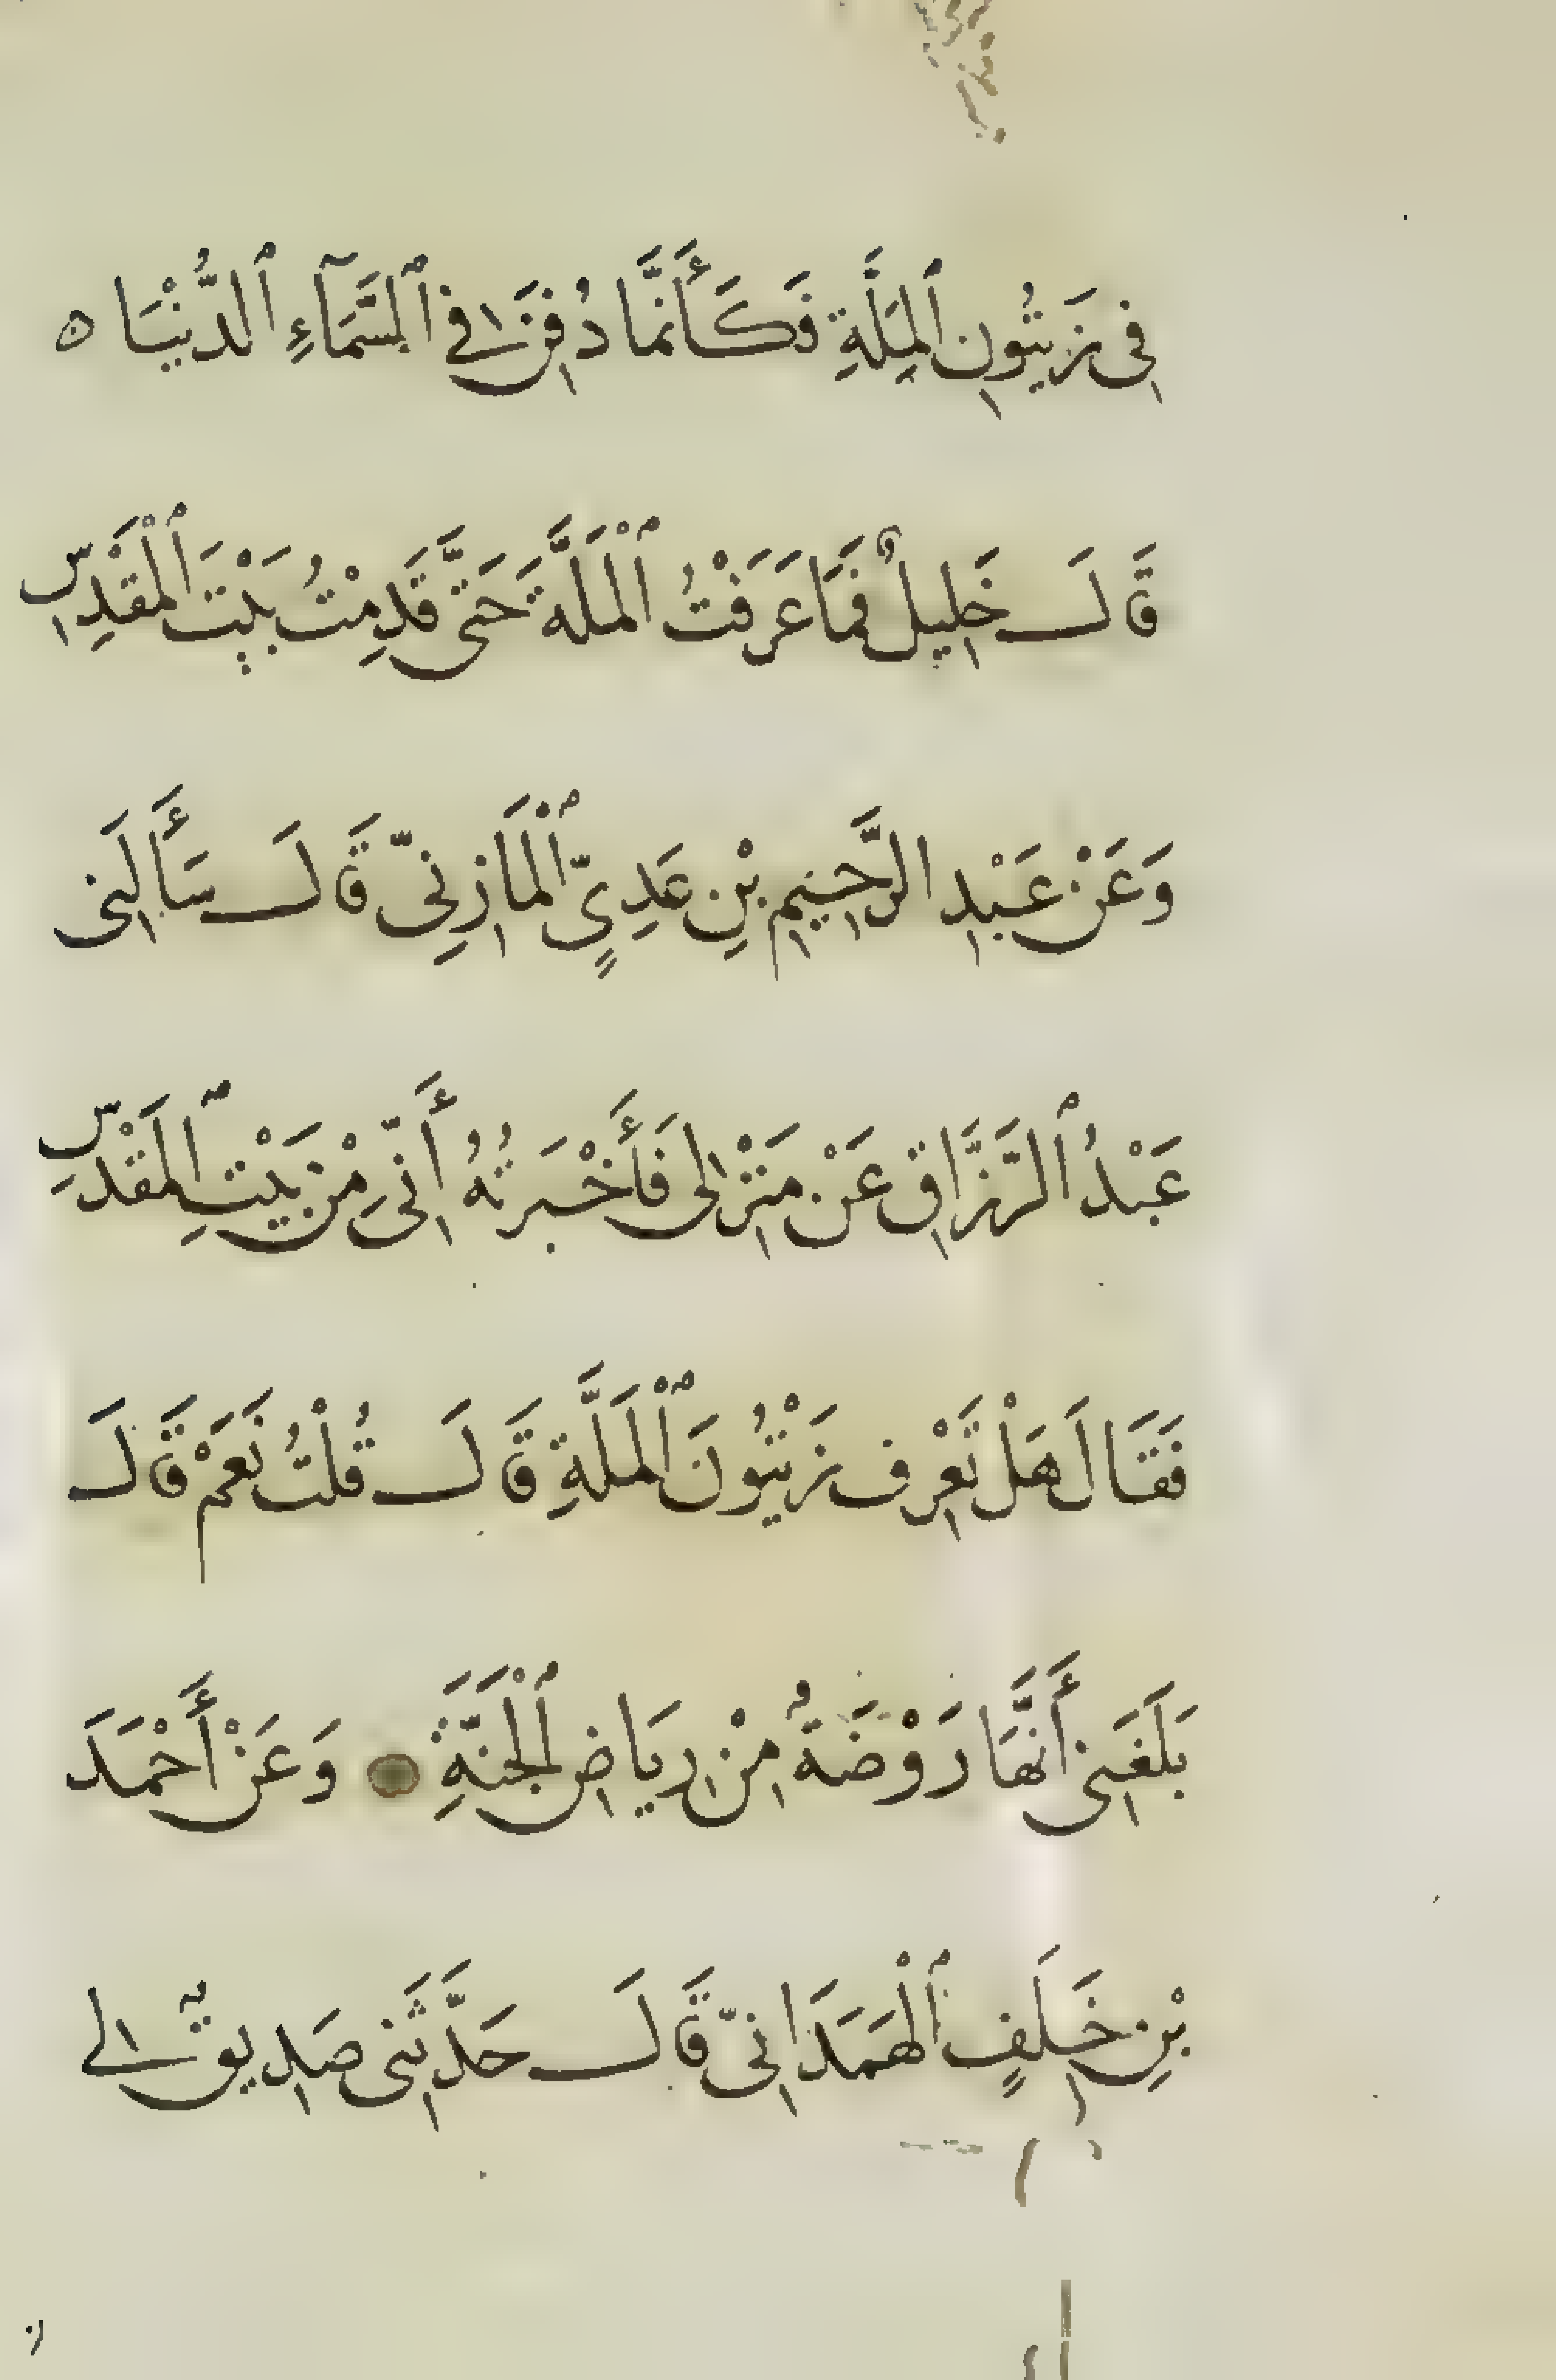 فِى زَيْتُونِ ٱلْمَلَّةِ فَكَأَنَّمَا دُفِنَ فِى ٱلسَّمَآءِ ٱلدُّنْيَا ه
قَالَ خَلِيلٌ فَمَا عَرَفْتُ ٱلْمَلَّةَ حَتَّى قَدِمْتُ بَيْتَ ٱلْمَقْدِسِ
وَعَنْ عَبْدِ الرَّحِيمِ بْنِ عَدِيٍّ ٱلْمَازِنِىِّ قَالَ سَأَلَنِى
عَبْدُ ٱلرَّزَّاقِ عَنْ مَنْزِلِى فَأَخْبَرْتُهُ أَنِّى مِنْ بَيْتِ ٱلْمَقْدِسِ
فَقَالَ هَلْ تَعْرِفُ زَيْتُونَ ٱلْمَلَّةِ قَالَ قُلْتُ نَعَمْ قَالَ
بَلَغَنِى أَنَّهَا رَوْضَةٌ مِنْ رِيَاضِ ٱلْجَنَّةِ وَعَنْ أَحْمَدَ
بْنِ خَلَفٍ ٱلْهَمَدَانِىِّ قَالَ حَدَّثَنِى صَدِيقٌ لِى